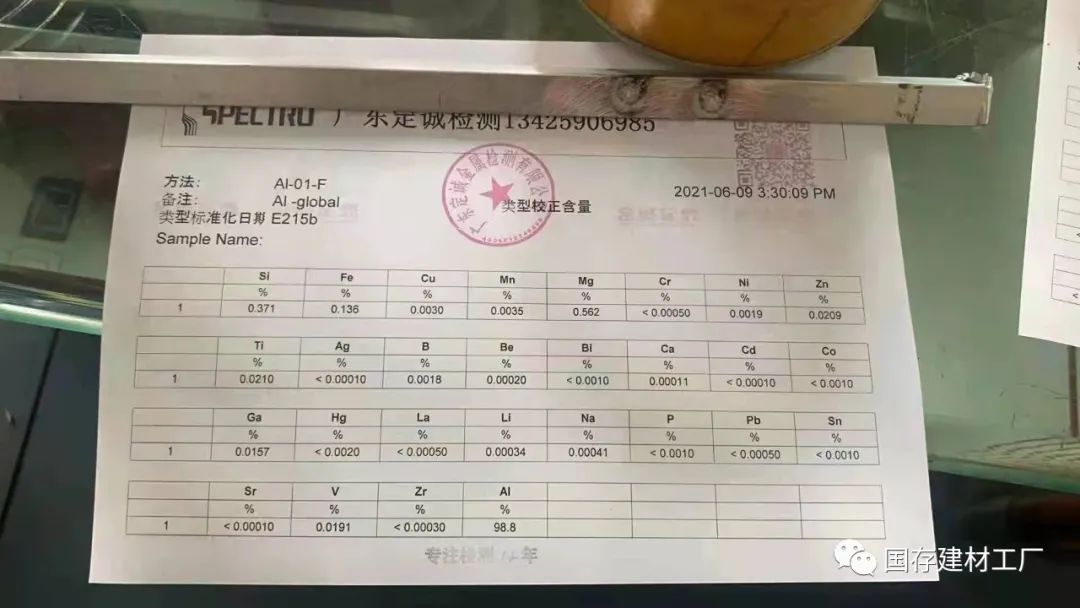 SPECTRO 广东定诚检测13425906985
广东定诚金属检测有限公司
方法: Al-01-F
备注: Al -global 类型校正含量 2021-06-09 3:30:09 PM
类型标准化日期 E215b
Sample Name:
Si Fe Cu Mn Mg Cr Ni Zn
% % % % % % % %
1 0.371 0.136 0.0030 0.0035 0.562 < 0.00050 0.0019 0.0209
Ti Ag B Be Bi Ca Cd Co
% % % % % % % %
1 0.0210 < 0.00010 0.0018 0.00020 < 0.0010 0.00011 < 0.00010 < 0.0010
Ga Hg La Li Na P Pb Sn
% % % % % % % %
1 0.0157 < 0.0020 < 0.00050 0.00034 0.00041 < 0.0010 < 0.00050 < 0.0010
Sr V Zr Al
% % % %
1 < 0.00010 0.0191 < 0.00030 98.8
专注检测 年
国存建材工厂